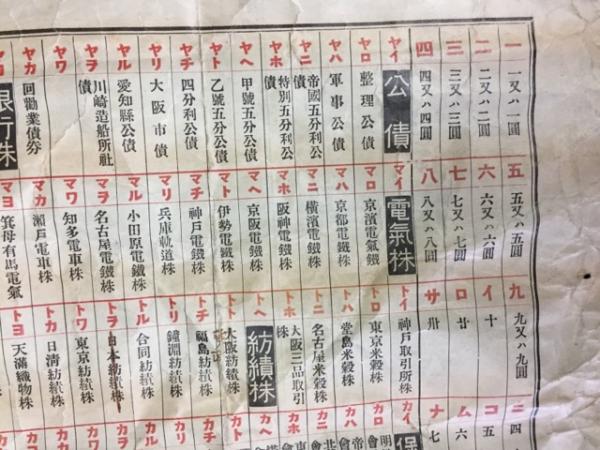 一 一又ハ一圓
二 二又ハ二圓
三 三又ハ三圓
四 四又ハ四圓
ヤイ 公債
ヤロ 整理公債
ヤハ 軍事公債
ヤニ 帝國五分利公債
ヤホ 特別五分利公債
ヤヘ 甲號五分公債
ヤト 乙號五分公債
ヤチ 四分利公債
ヤリ 大阪市債
ヤル 愛知縣公債
ヤヲ 川崎造船所社債
ヤワ
ヤカ 回勸業債券
銀行株
五 五又ハ五圓
六 六又ハ六圓
七 七又ハ七圓
八 八又ハ八圓
マイ 電氣株
マロ 京濱電氣鐵
マハ 京都電鐵株
マニ 横濱電鐵株
マホ 阪神電鐵株
マヘ 京阪電鐵株
マト 伊勢電鐵株
マチ 神戸電鐵株
マリ 兵庫軌道株
マル 小田原電鐵株
マヲ 名古屋電鐵株
マワ 知多電車株
マカ 瀬戸電車株
マヨ 箕母有馬電氣
九 九又ハ九圓
イ 十
ロ 廿
サ 卅
トイ 神戸取引所株
トロ 東京米穀株
トハ 堂島米穀株
トニ 名古屋米穀株
トホ 大阪三品取引株
トヘ 紡績株
トト 大阪紡績株
トチ 福島紡績株
トリ 鐘淵紡績株
トル 合同紡績株
トヲ 日本紡績株
トワ 東京紡績株
トカ 日清紡績株
トヨ 天滿織物株
ニ 四
コ 五
ム 六
ナ 七
カイ 保
カロ 明
カハ 帝
カニ
カホ
カヘ
カト
カチ
カリ
カル
カヲ
カワ